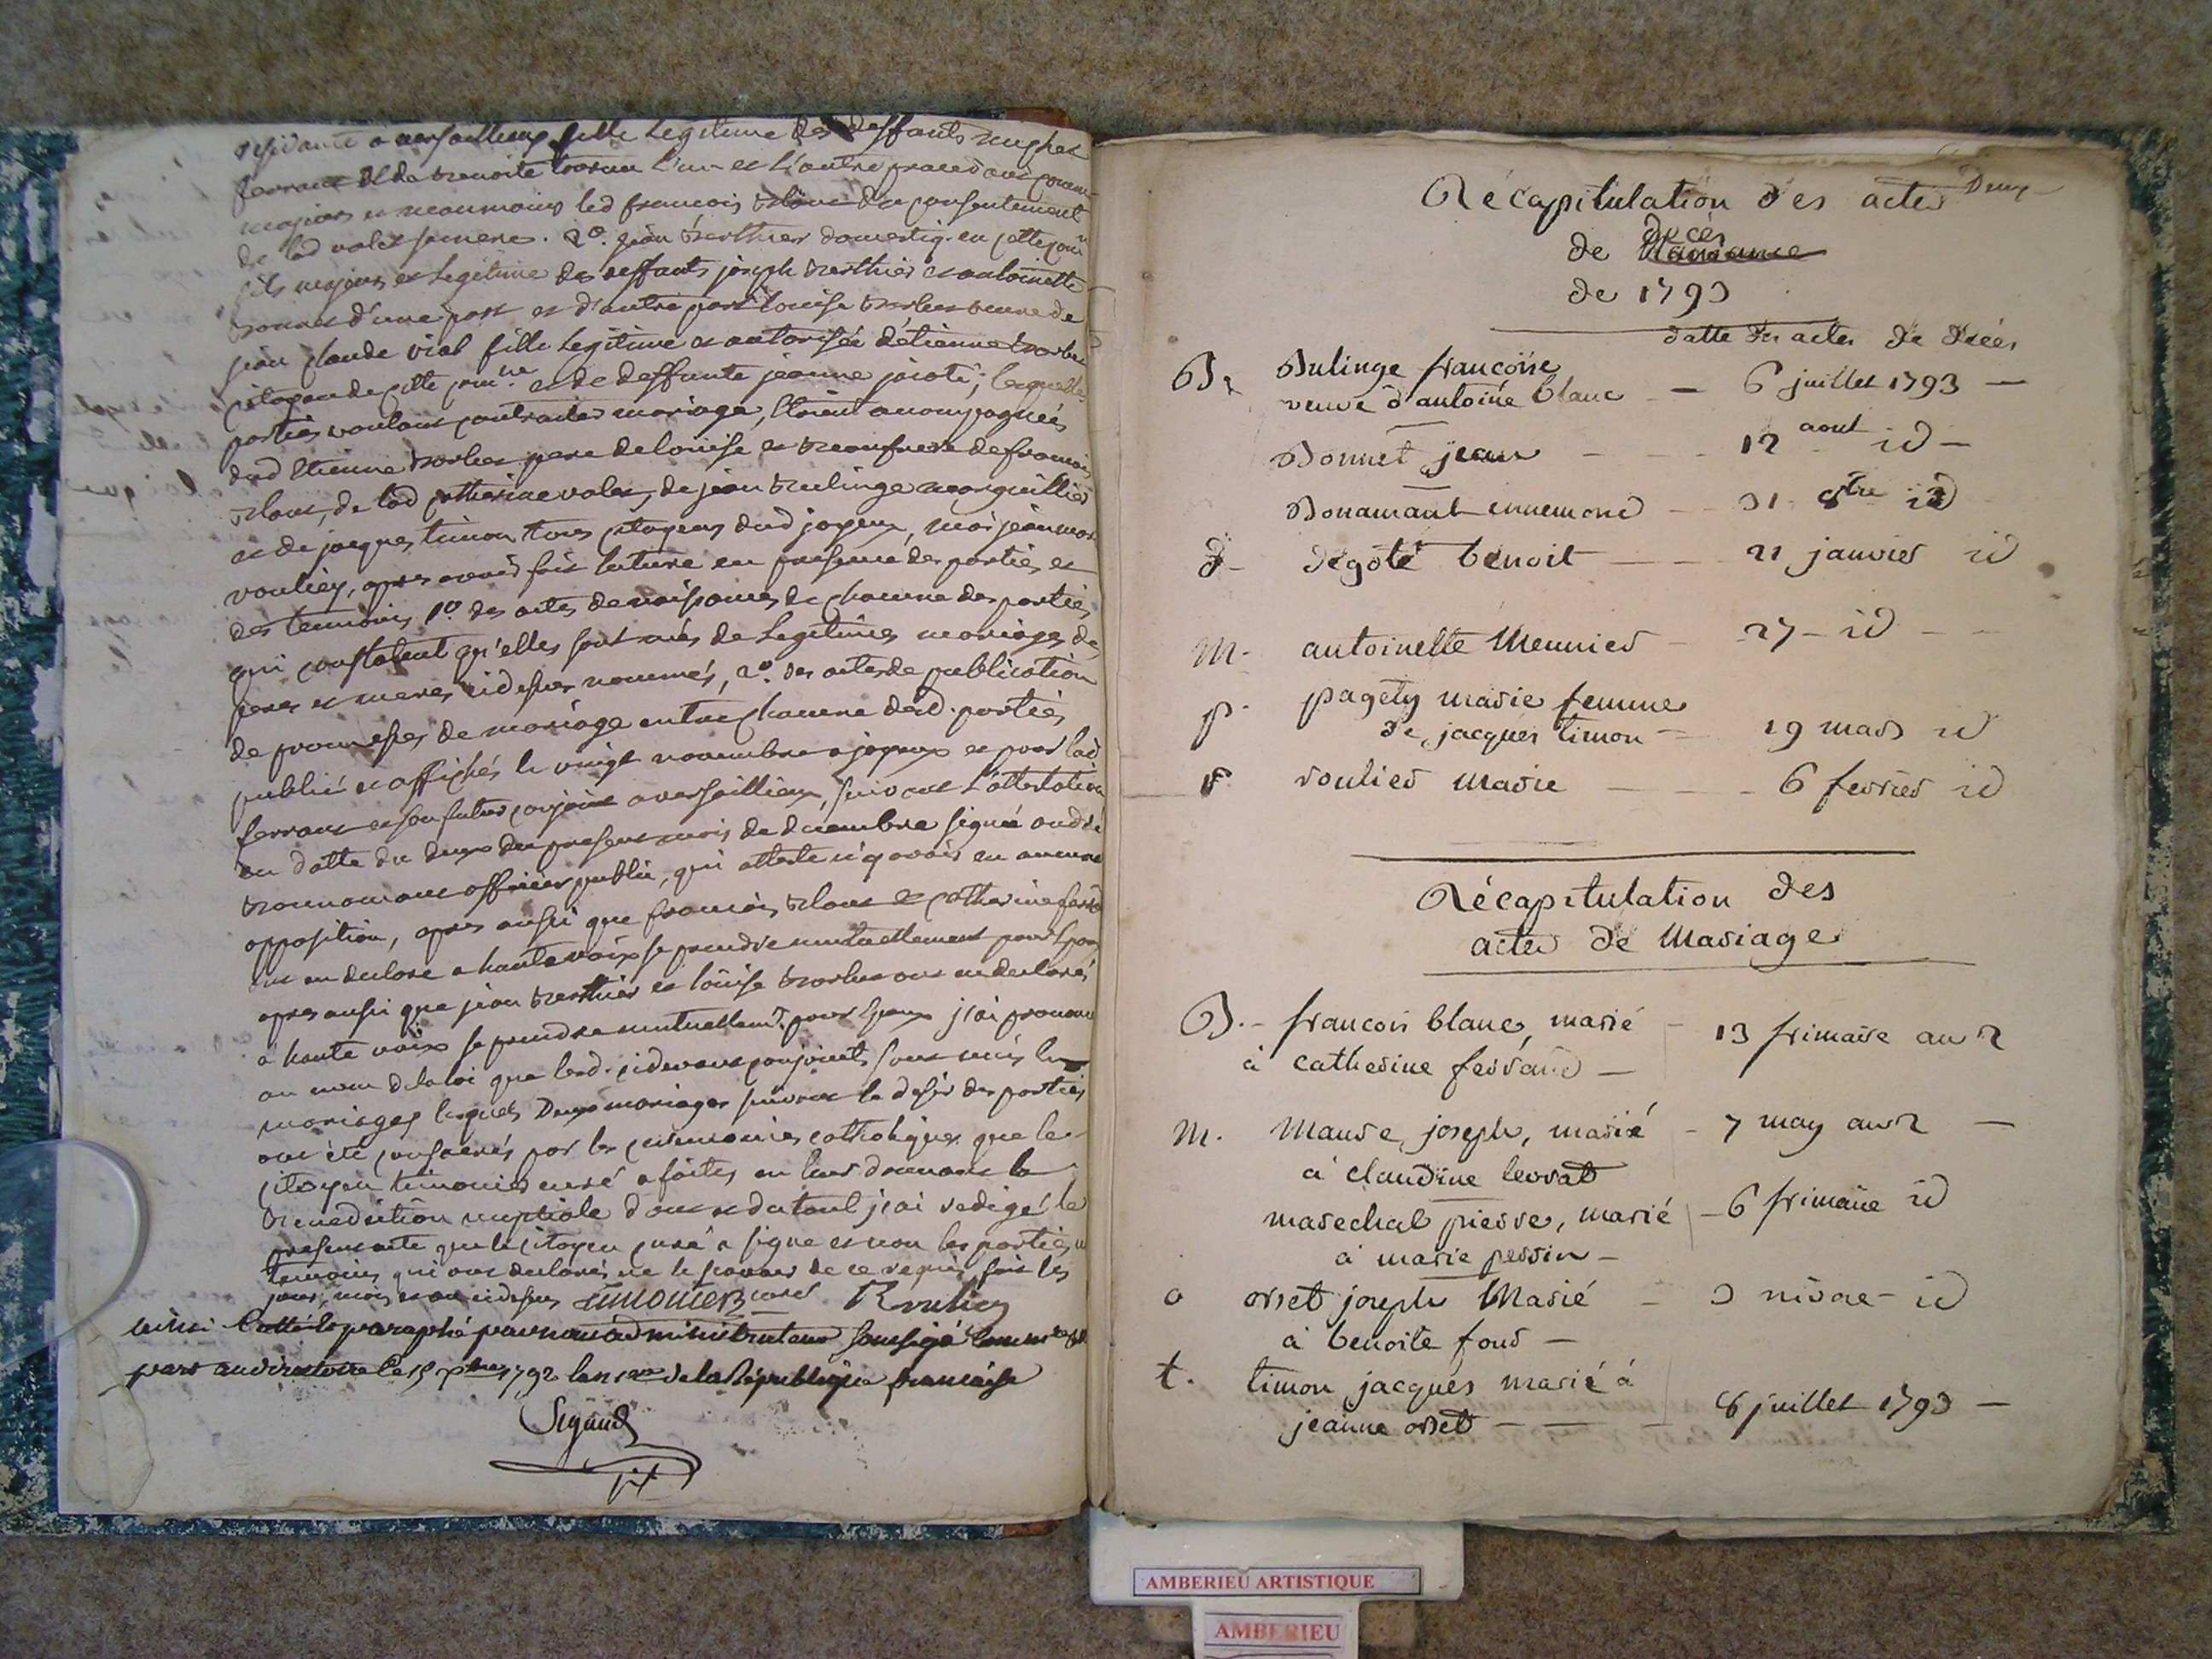 residante a versailleux fille Legitime des deffants
ferrant et de benoite l'un et L'autre procedant comme
majeurs et neanmoins led francois blanc du consentement
de lad valet sa mere. 2º. jean berthier domestiq. en cette com
fils majeur et Legitime des deffants joseph berthier et antoinette
bonnet d'une part et d'autre part louise veuve de
jean claude vial fille Legitime et autorisée d'étienne
citoyen de cette comune et de deffunte jeanne ; lesquelles
parties voulant contracter mariage, étoient accompagnées
dud étienne pere de louise et beaufrere de francois
blanc, de lad catherine valet, de jean bulinge marguillier
et de jacques timon tous citoyens dud joyeux, moi jean marie
vouliez, apres avoir fait lecture en presence des parties et
des temoins 1º. des actes de naissances de chacune des parties
qui constatent qu'elles sont nées de Legitimes mariages de
peres et meres cidessus nommés, 2º. des actes de publication
de promesses de mariage entre chacune desd. parties
publié et affichés le vingt novembre a joyeux et pour lad
ferrant et son futur conjoint a versailleux, suivant L'attestation
en datte du deux du present mois de decembre signé
officier public, qui atteste n'y avoir eu aucune
opposition, apres aussi que francois blanc et catherine ferrand
ont eu declaré a haute voix se prendre mutuellement pour Epoux
apres aussi que jean berthier et louise ont eu declaré
a haute voix se prendre mutuellemt. pour Epoux j'ai prononcé
au nom de la loi que lesd. cidevant conjoints sont unis en
mariages lesquels Deux mariages suivant le desir des parties
ont été consacrés par les ceremonies catholiques que le
citoyen timonier curé a faites en leur donnant la
benediction nuptiale dont et du tout j'ai redigé le
present acte que le citoyen curé a signé et non les parties ni
temoins qui ont declarés ne le scavoir de ce requis fait les
jour, mois et an cidessus timonier curé
cotté et paraphé par nous administrateur soussigné
au directoire le 15 xbre 1792 lan 1er de la République francaise
Sigaud
Récapitulation des actes Deux
décès
de Naissance
de 1793
datte des actes de Décés
B. Bulinge francoise
veuve d'antoine blanc - 6 juillet 1793 -
Bonnet jean - - - 12 aout id -
Bonamant ennemond - 31 8bre id
d - dégoté benoit - - 21 janvier id
M. antoinette Meunier - 27 - id - -
p. pagety marie femme
de jacques timon - 19 mars id
v voulier marie - - - 6 fevrier id
Récapitulation des
actes de Mariage
B. - francois blanc, marié
à catherine ferrand - 13 frimaire an 2
M. Mause joseph, marié - 7 may an 2 -
à claudine levrat
marechal pierre, marié - 6 frimaire id
à marie perrin -
o orset joseph Marié - 3 nivose - id
à benoite -
t. timon jacques marié à
jeanne orset - - 8 juillet 1793 -
AMBERIEU ARTISTIQUE
AMBERIEU